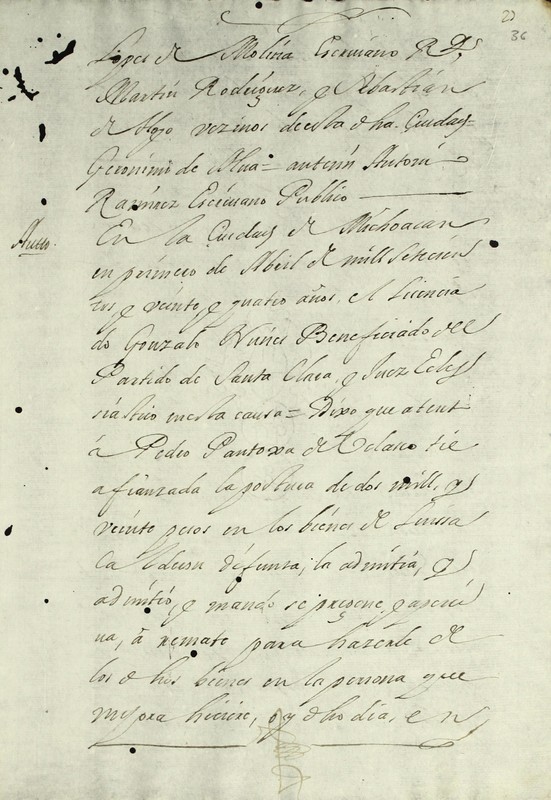 23
36
Lopes de Molina Escriuano R.l
Martin Rodriguez, y Sebastian
de Alejo vezinos de esta dha Ciudad=
Geronimo de Alua= antemi Antonio
Ramirez Escriuano Publico
Autto. En la Ciudad de Michoacan
en primero de Abril de mill setecien
tos y veinte y quatro años, el Licencia
do Gonzalo Nuñes Beneficiado del
Partido de Santa Clara, y Juez Ecles
siastico en esta causa= Dixo que atent
à Pedro Pantoxa de tie
afianzada la postura de dos mill, y
veinte pesos en los bienes de
Calderon difunta, la admitia, y
admitió, y mandó se pregone, y aperci
ua, à remate para hazerle de
los dhos bienes en la persona que
mejora hiciere, oy dho dia, en